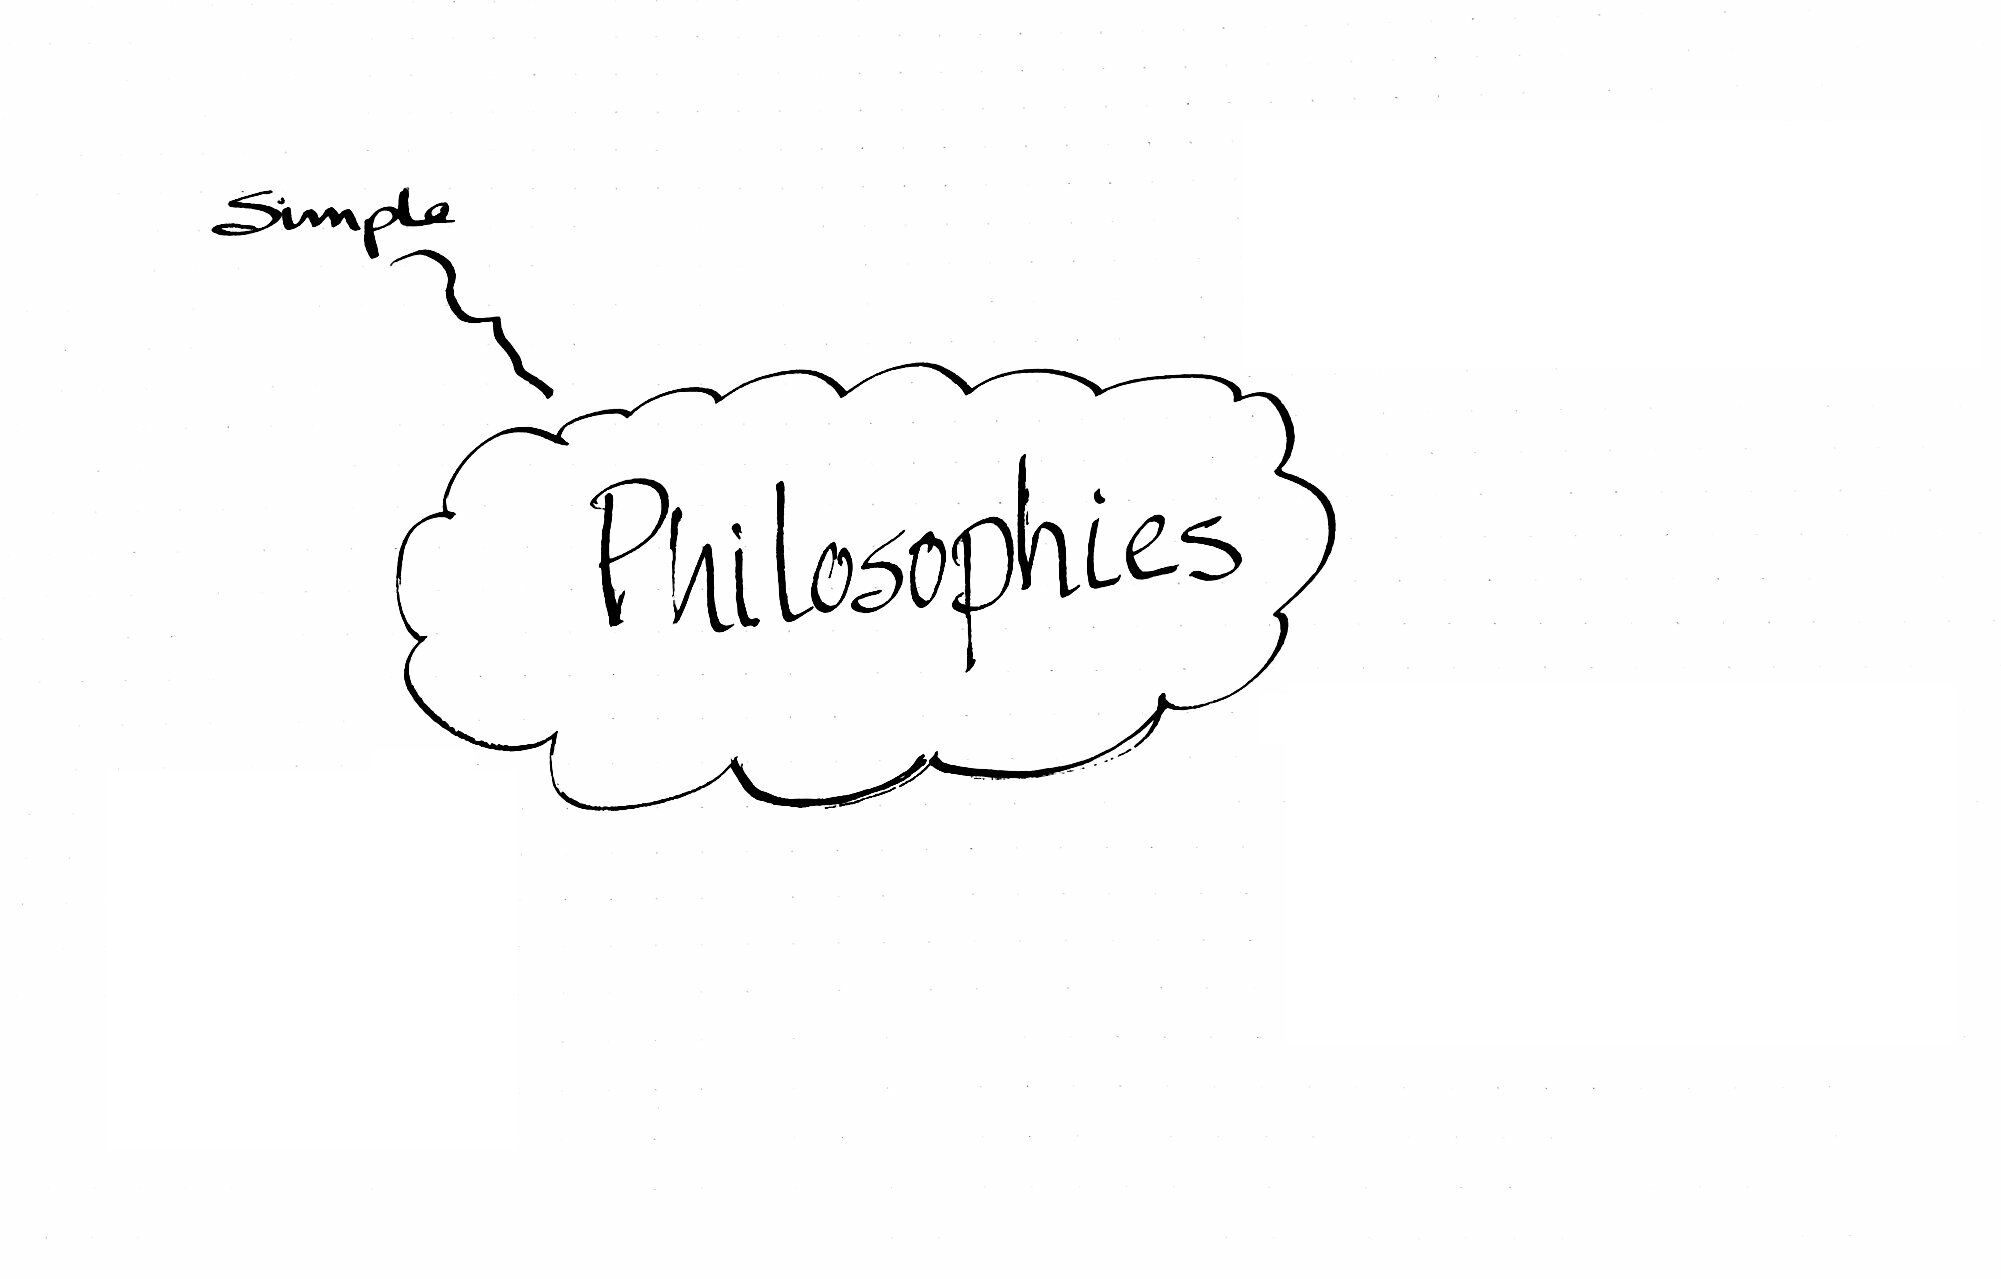 Simple
Philosophies